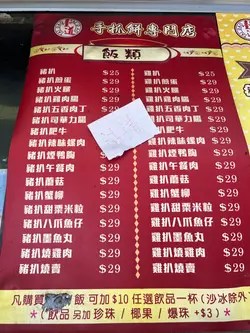 手抓餅專門店
飯類
豬扒 $25
豬扒煎蛋 $29
豬扒火腿 $29
豬扒雞肉腸 $29
豬扒五香肉丁 $29
豬扒可華力腸 $29
豬扒肥牛
豬扒辣味螺肉
豬扒煙鴨胸 $29
豬扒午餐肉 $29
豬扒蘑菇 $29
豬扒蟹柳 $29
豬扒甜粟米粒 $29
豬扒八爪魚仔 $29
豬扒墨魚丸 $29
豬扒燒雞肉 $29
豬扒燒賣 $29
雞扒 $25
雞扒煎蛋 $29
雞扒火腿 $29
雞扒雞肉腸 $29
雞扒五香肉丁 $29
雞扒可華力腸 $29
雞扒肥牛 $29
雞扒辣味螺肉 $29
雞扒煙鴨胸 $29
雞扒午餐肉 $29
雞扒蘑菇 $29
雞扒蟹柳 $29
雞扒甜粟米粒 $29
雞扒八爪魚仔 $29
雞扒墨魚丸 $29
雞扒燒雞肉 $29
雞扒燒賣 $29
凡購買 飯 可加$10任選飲品一杯(沙冰除外)
*(飲品另加 珍珠 / 椰果 / 爆珠 +$3)*